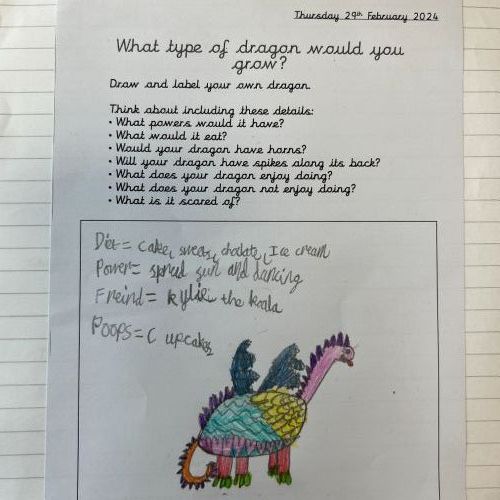 Thursday 29th February 2024
What type of dragon would you
grow?
Draw and label your own dragon.
Think about including these details:
• What powers would it have?
• What would it eat?
• Would your dragon have horns?
• Will your dragon have spikes along its back?
• What does your dragon enjoy doing?
• What does your dragon not enjoy doing?
• What is it scared of?
Diet= cake, chocolate, Ice cream
Power= spread sun and dancing
Freind= Kylie the koala
Poops= Cupcakes